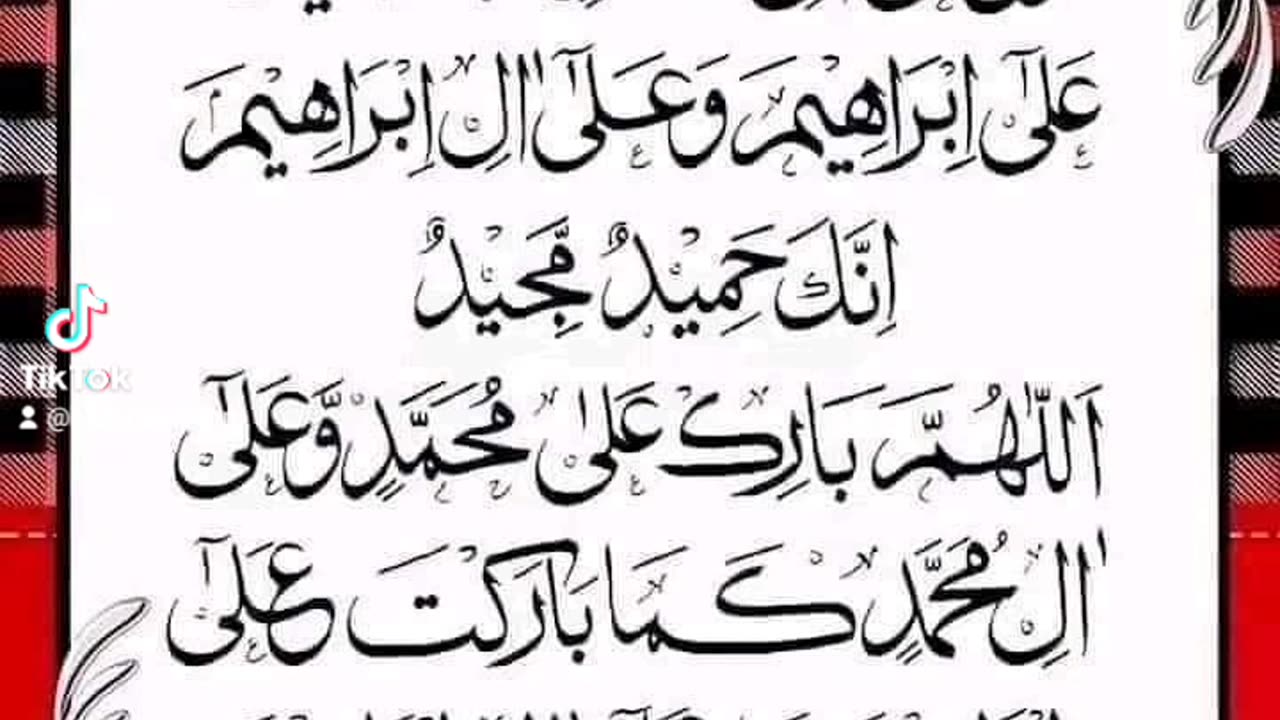 عَلٰٓى اِبْرَاهِيْمَ وَعَلٰٓى اٰلِ اِبْرَاهِيْمَ
اِنَّكَ حَمِيْدٌ مَّجِيْدٌ
اَللّٰهُمَّ بَارِكْ عَلٰى مُحَمَّدٍ وَّعَلٰٓى
اٰلِ مُحَمَّدٍ كَمَا بَارَكْتَ عَلٰٓى
TikTok
@